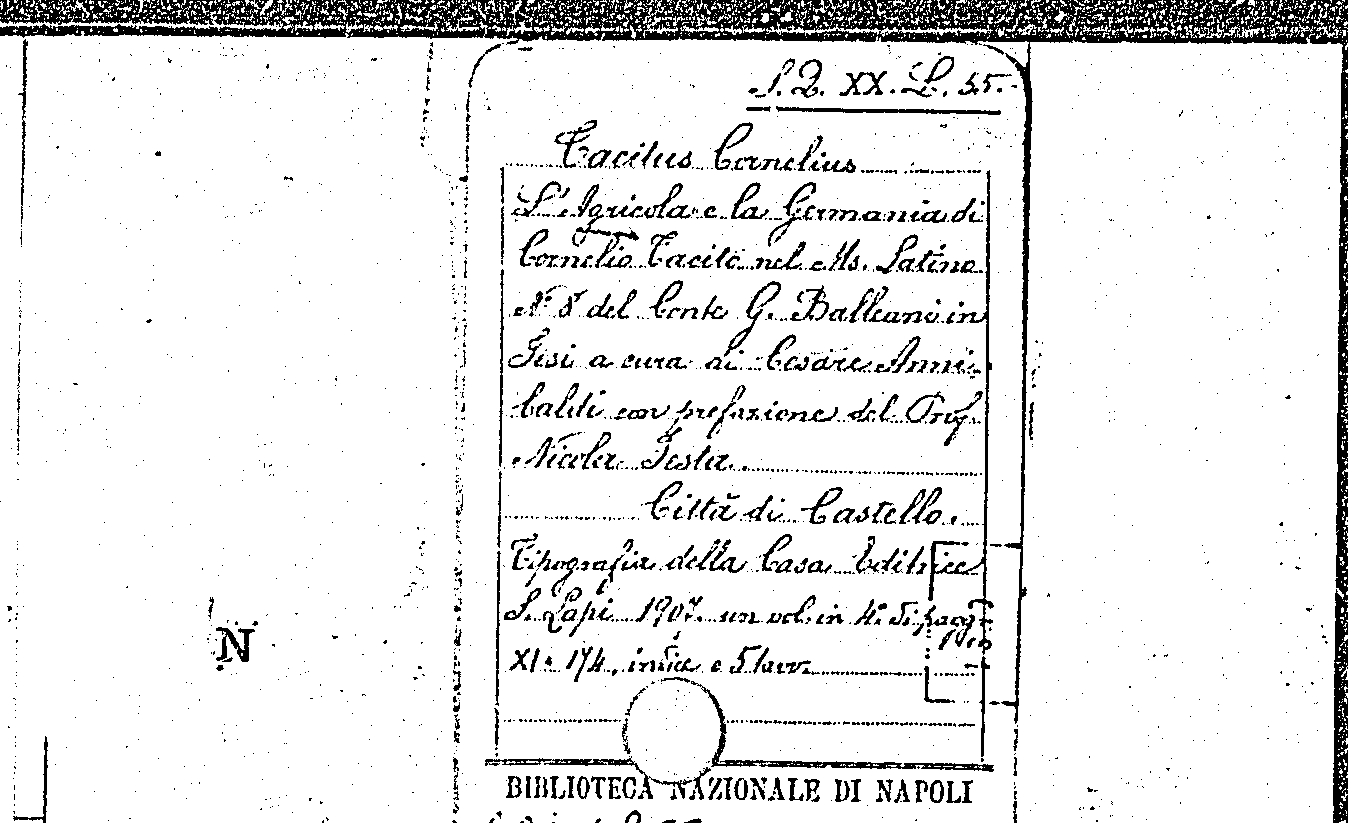 S.Q. XX. L. 55.
Tacitus Cornelius
L'Agricola e la Germania di
Cornelio Tacito nel Ms. Latino
N. 8 del Conte G. Balleani in
Jesi a cura di Cesare Anni-
baldi con prefazione del Prof.
Nicola Festa.
Città di Castello.
Tipografia della Casa Editrice
S. Lapi 1907. un vol. in 4° di pagg.
XI - 174, indice e 5 tavv.
N
BIBLIOTECA NAZIONALE DI NAPOLI